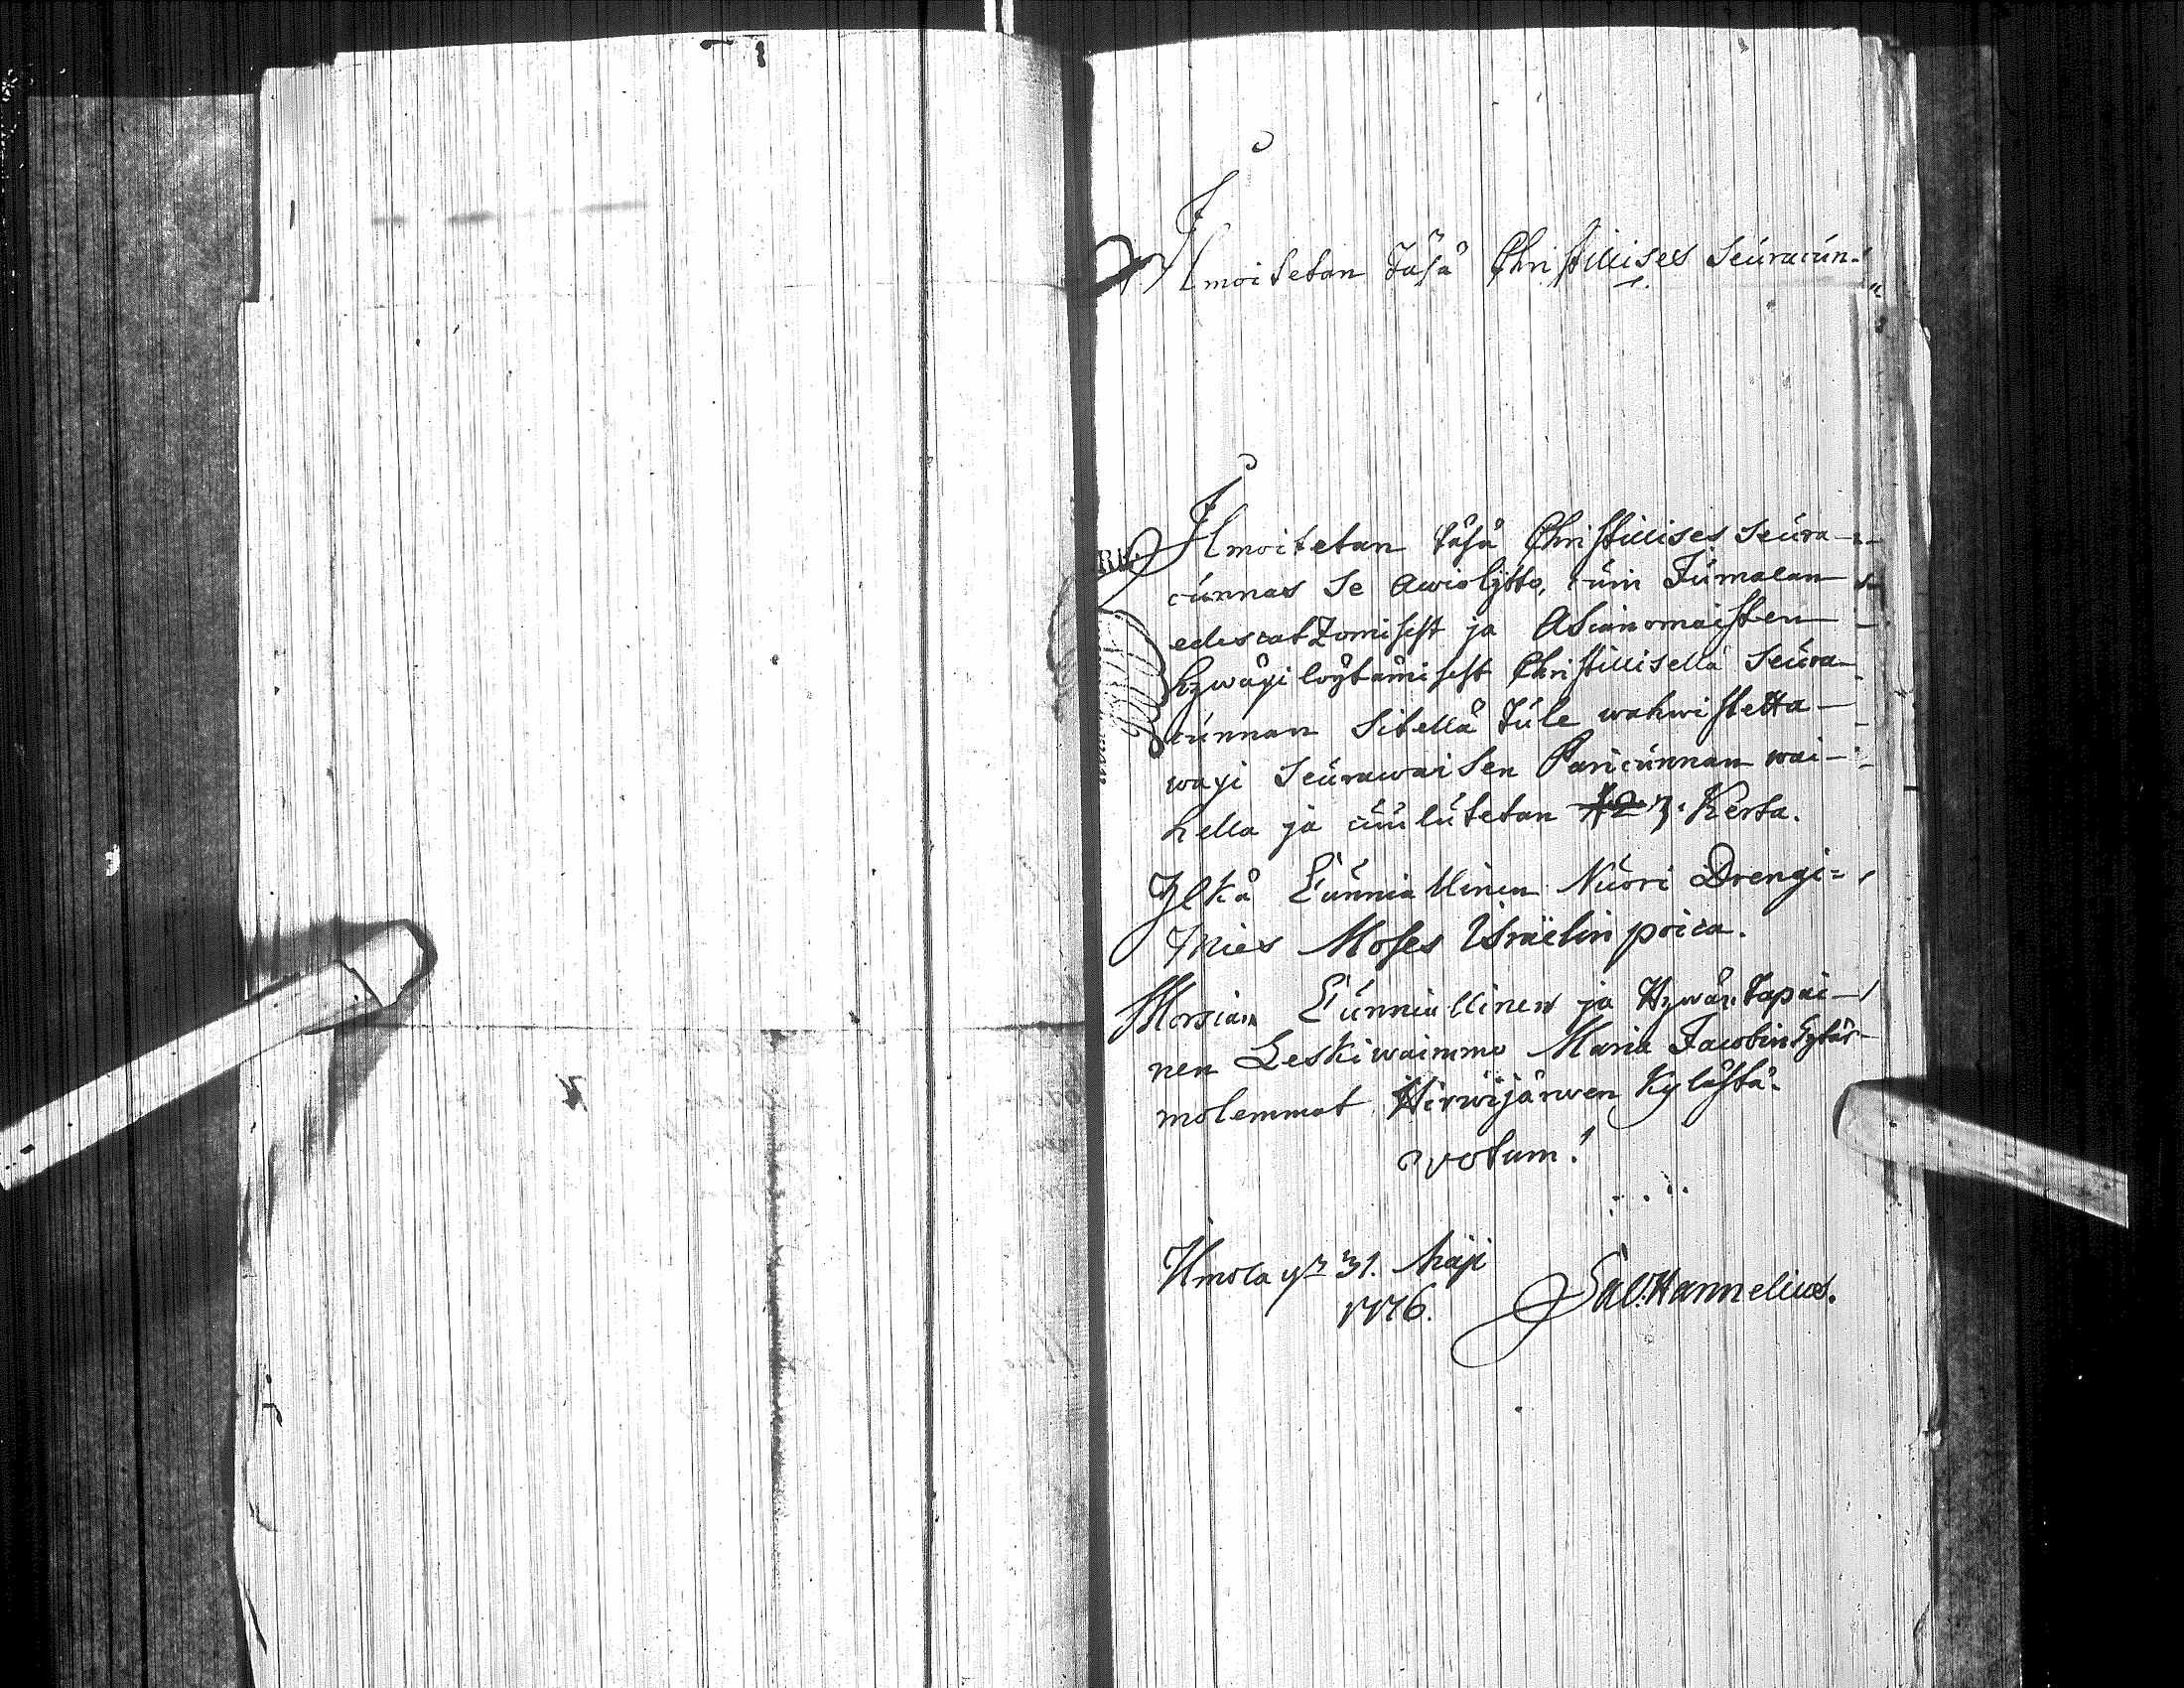 Ilmoitetan täsä Christillises Seuracun-
Ilmoitetan täsä Christillises Seura-
cunnas Se Awioljtto, cuin Jumalan
edescatzomisest ja Asianomaisten
hywäxi löytämisest Christillisellä Seura-
cunnan Sitellä tule wahwistetta-
waxi Seurawaisen Paricunnan wai-
hella ja cuulutetan 1 2 3. Kerta.
Ylkä Cunniallinen Nuori Drengi-
Mies Moses Israëlin poica.
Morsian Cunniallinen ja Hywän tapai-
nen Leskiwaimmo Maria Jacobin tytär
molemmat Hirwijärwen Kylästä.
votum!
Ilmola yn 31. Maji
1776.
Sal. Hannelius.